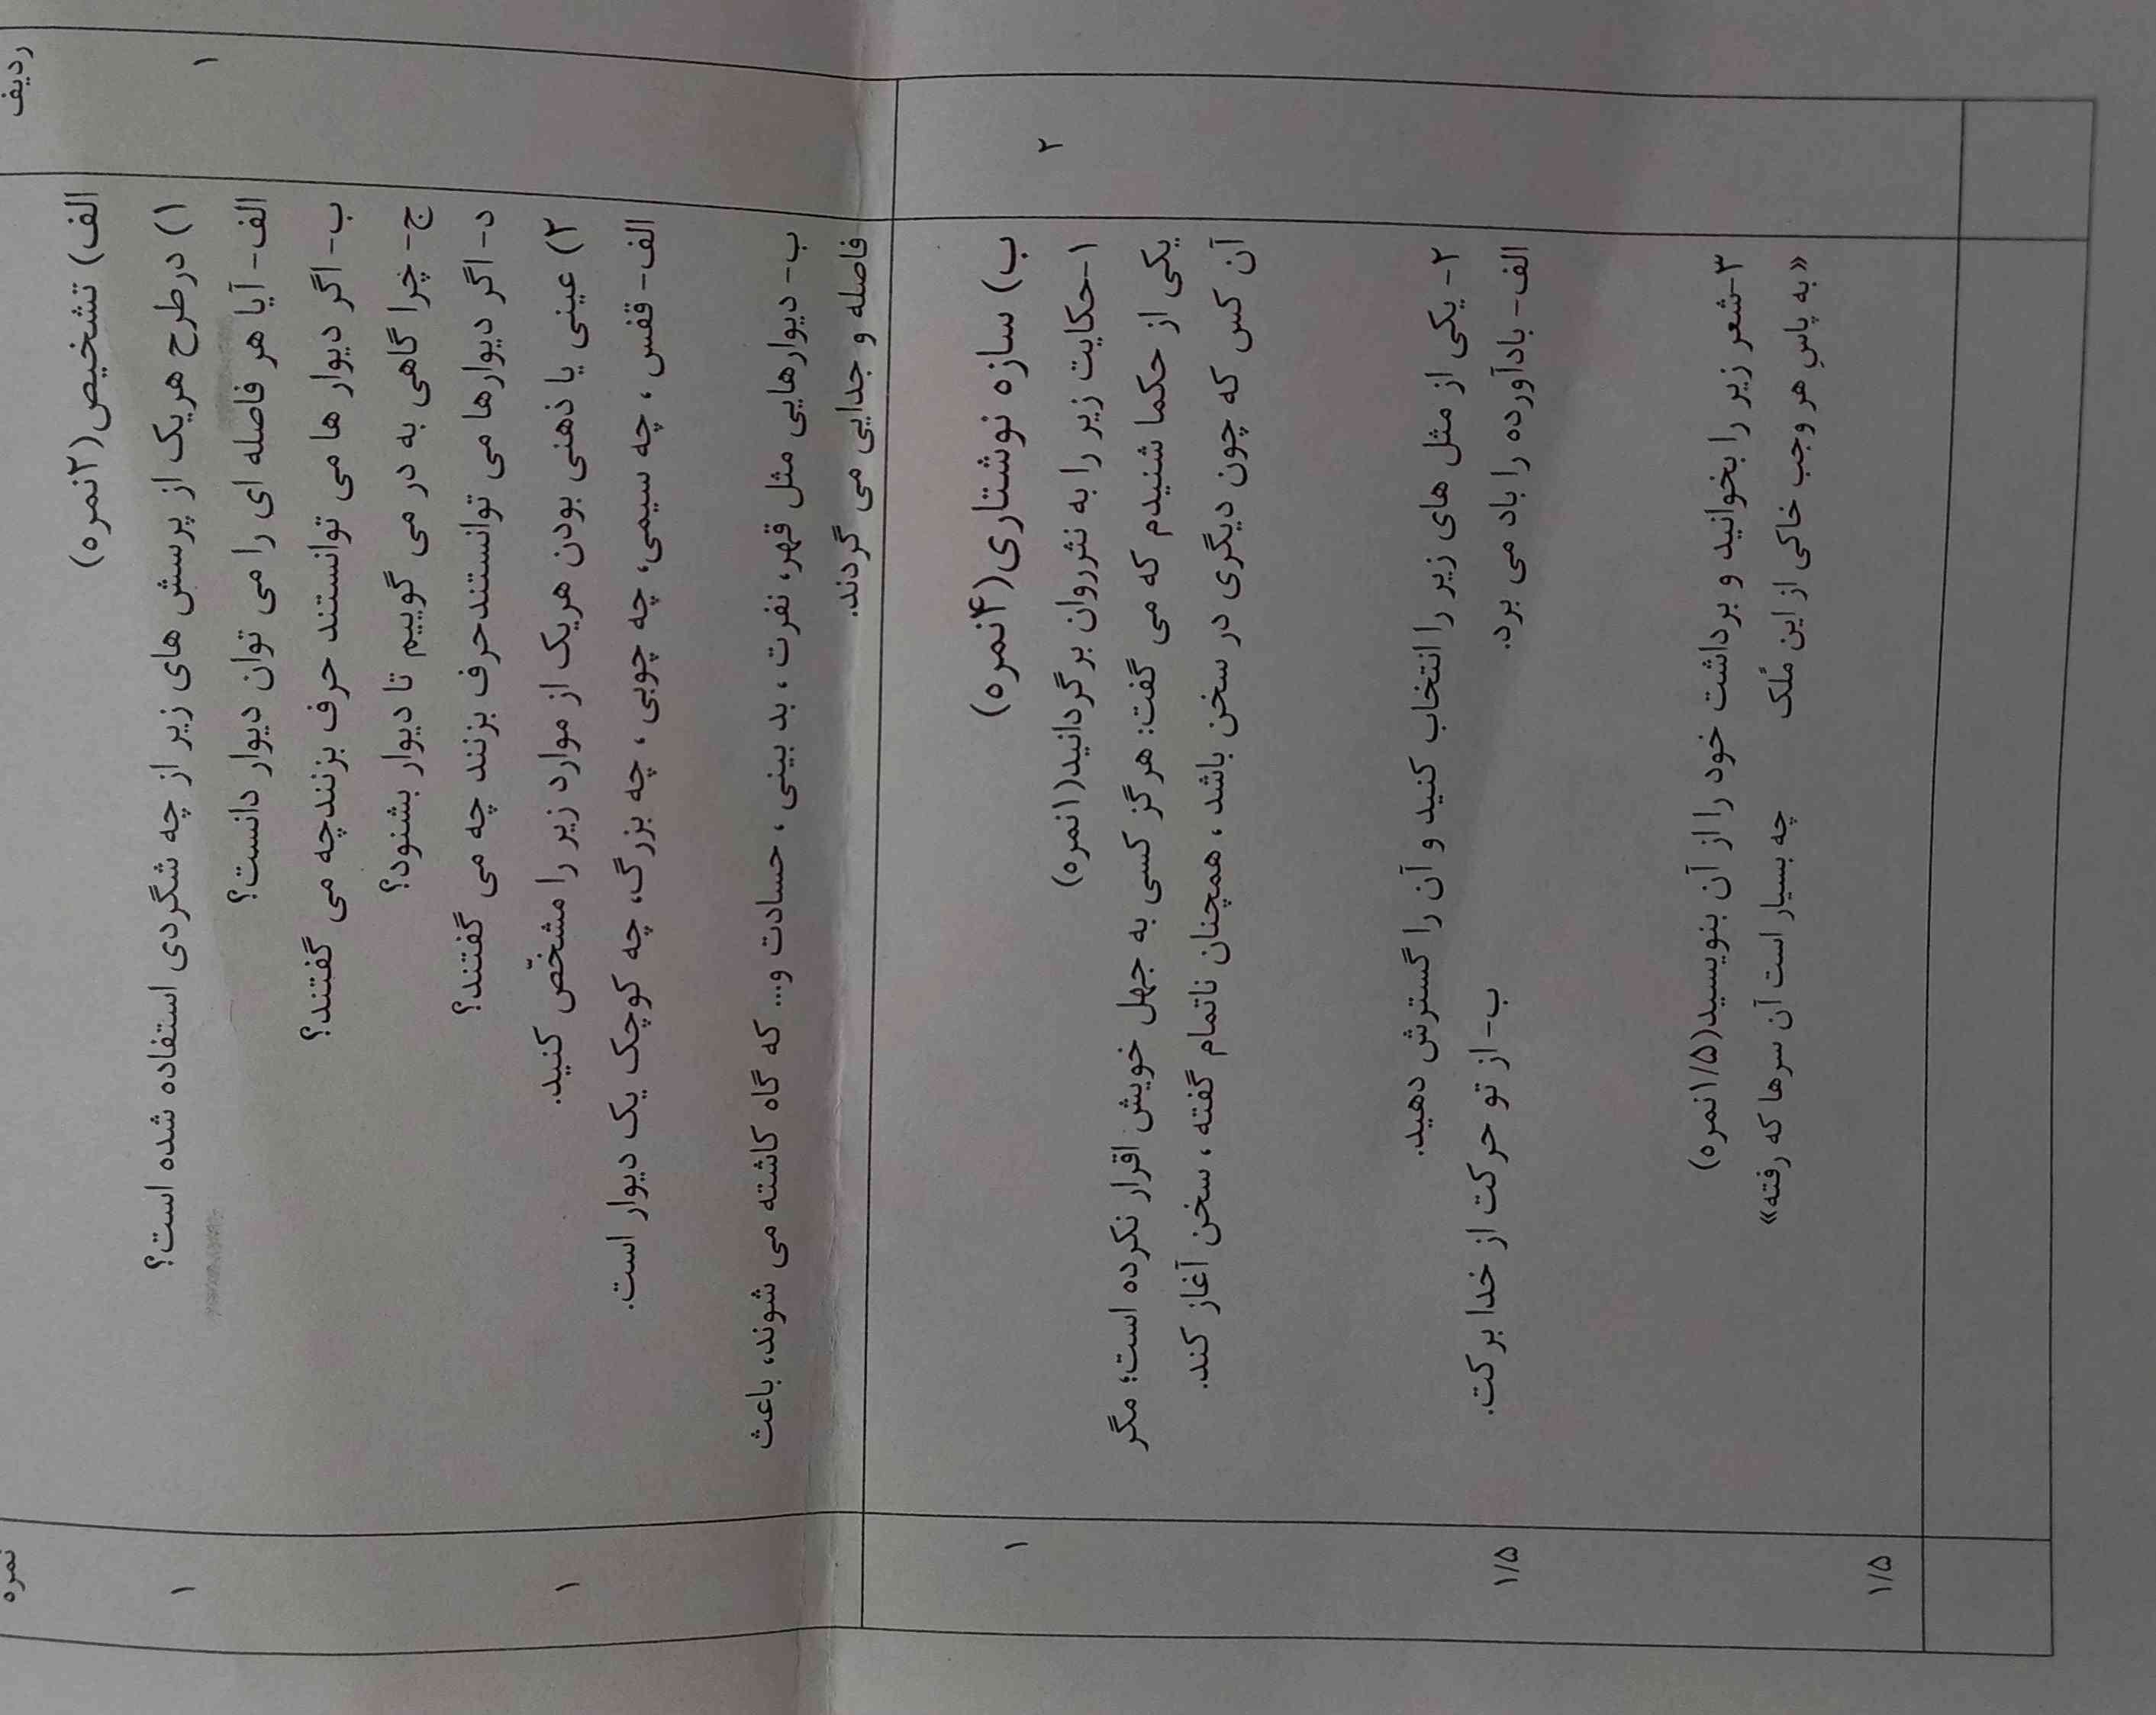 ردیف نمره
الف) تشخیص(۲نمره)
۱ ۱) درطرح هریک از پرسش های زیر از چه شگردی استفاده شده است؟ ۱
الف- آیا هر فاصله ای را می توان دیوار دانست؟
ب- اگر دیوار ها می توانستند حرف بزنندچه می گفتند؟
ج- چرا گاهی به در می گوییم تا دیوار بشنود؟
د- اگر دیوارها می توانستندحرف بزنند چه می گفتند؟
۲) عینی یا ذهنی بودن هریک از موارد زیر را مشخّص کنید. ۱
الف- قفس ، چه سیمی، چه چوبی ، چه بزرگ، چه کوچک یک دیوار است.
ب- دیوارهایی مثل قهر، نفرت ، بد بینی ، حسادت و... که گاه کاشته می شوند، باعث
فاصله و جدایی می گردند.
ب) سازه نوشتاری(۴نمره)
۲ ۱-حکایت زیر را به نثرروان برگردانید(۱نمره) ۱
یکی از حکما شنیدم که می گفت: هرگز کسی به جهل خویش اقرار نکرده است؛ مگر
آن کس که چون دیگری در سخن باشد ، همچنان ناتمام گفته ، سخن آغاز کند.
۲- یکی از مثل های زیر را انتخاب کنید و آن را گسترش دهید.
الف- بادآورده را باد می برد. ب- از تو حرکت از خدا برکت. ۱/۵
۳-شعر زیر را بخوانید و برداشت خود را از آن بنویسید(۱/۵نمره)
«به پاسِ هر وجب خاکی از این مُلک چه بسیار است آن سرها که رفته»
۱/۵